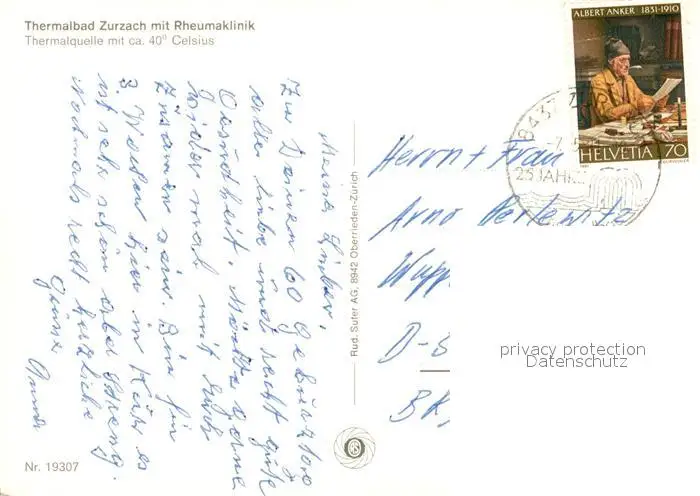 Thermalbad Zurzach mit Rheumaklinik
Thermalquelle mit ca. 40° Celsius
ALBERT ANKER 1831-1910
HELVETIA 70
8437
25 JAHRE
Meine Lieben,
Zu Deinen 60 Geburtstag
alles liebe und recht gute
Gesundheit. Möchte gerne
wieder mal mit Euch
zusamen sein. Bin für
3 Wochen hier in Kur es
ist sehr schön aber streng.
Nochmals recht herzliche
Grüsse
Rud. Suter AG, 8942 Oberrieden-Zürich
Herrn + Frau
Arno Perlewitz
Wupp
D-5
privacy protection
Datenschutz
Nr. 19307